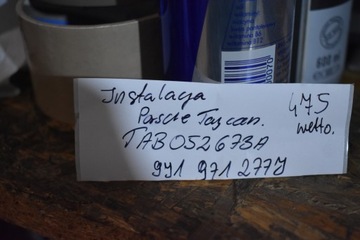 Instalacja
Porsche Taycan.
TAB052673A
9J1 971 277J
475
netto.